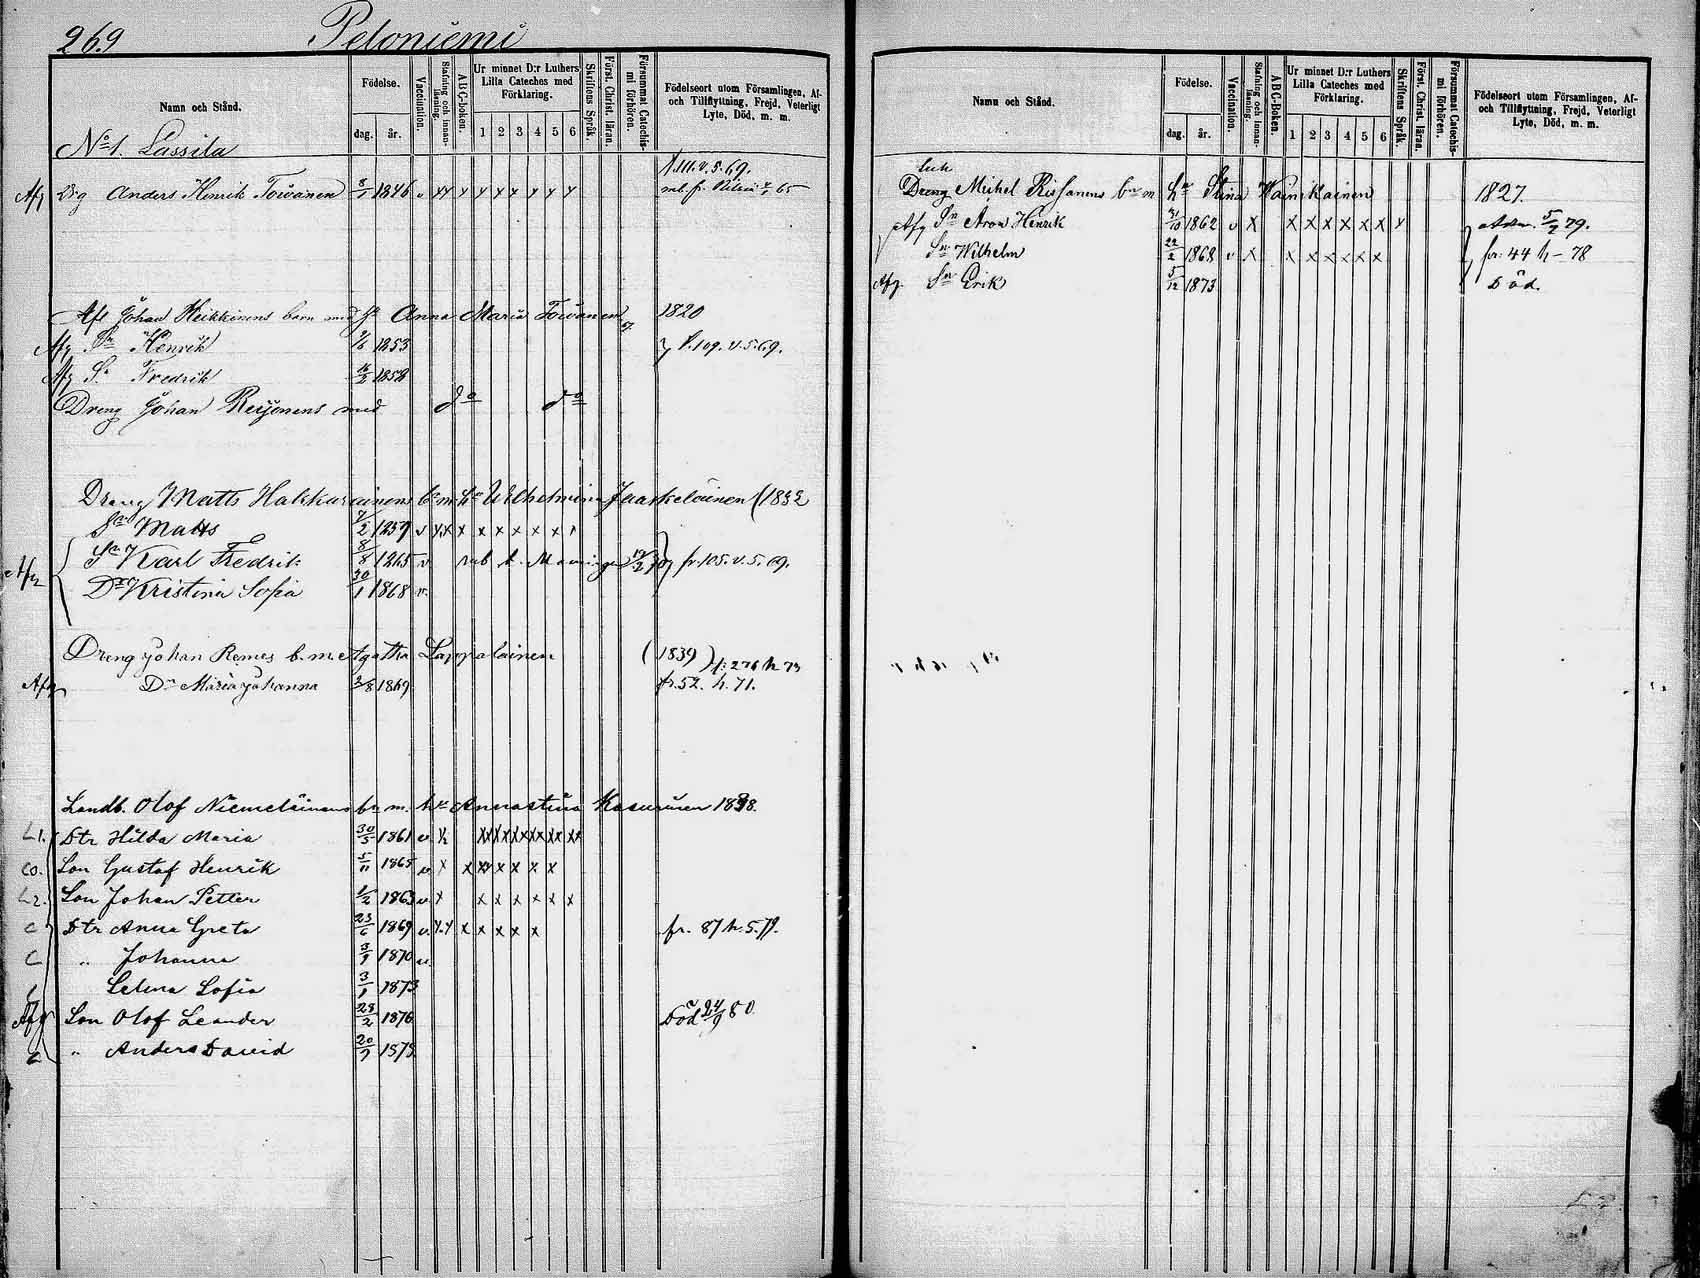 269 Peloniemi
Namn och Stånd.
Födelse.
dag. år.
Vaccination.
Stafning och innanläsning.
ABC-boken.
Ur minnet D:r Luthers Lilla Cateches med Förklaring.
1 2 3 4 5 6
Skriftens Språk.
Först. Christ. läran.
Försummat Catechismi förhören.
Födelseort utom Församlingen, Af- och Tillflyttning, Frejd, Veterligt Lyte, Död, m. m.
No 1. Lassila
Afg Drg Anders Henrik Toivanen 1846 v xx x x x x x x x
Johan Heikkinens barn med Hu Anna Maria Toivanen 1820
Afg Sn Henrik 1853 f. 109. v. 5. 69.
Afg Sn Fredrik 1858
Dreng Johan Reijonens med do do
Dreng Matts Hakkarainens b. m. Hu Wilhelmina Jaaskeläinen (1832
Sn Matts 7/2 1859 v x x x x x x x x
Sn Karl Fredrik 8/8 1865 v fr 105. v. 5. 69.
Dr Kristina Sofia 30/1 1868 v.
Dreng Johan Remes b. m. Agatha Lappalainen (1839) f: 276 h 73
Afg Dr Maria Johanna 3/8 1869 fr. 52. h. 71.
Landb. Olof Niemeläinens bn m. hu Annastina Kasurinen 1838.
L1. Dtr Hilda Maria 30/5 1861 v.
co. Son Gustaf Henrik 5/11 1865 v. x x xx x x x x
L2. Son Johan Petter 1/2 1863 v. x x x x x x x
C Dtr Anna Greta 23/6 1869 v. x.x x x x x x fr. 87 h. 5. 79.
C " Johanna 3/9 1870 v.
Selma Sofia 3/1 1873
Afg Son Olof Leander 28/2 1876 Död 24/9 80
C " Anders David 20/9 1878
Namn och Stånd.
Födelse.
dag. år.
Vaccination.
Stafning och innanläsning.
ABC-boken.
Ur minnet D:r Luthers Lilla Cateches med Förklaring.
1 2 3 4 5 6
Skriftens Språk.
Först. Christ. läran.
Försummat Catechismi förhören.
Födelseort utom Församlingen, Af- och Tillflyttning, Frejd, Veterligt Lyte, Död, m. m.
Dreng Michel Rissanens bn m hu Stina Wäinikainen 1827.
Afg Sn Aron Henrik 31/10 1862 v x x x x x x x x 5/2 79.
Sn Wilhelm 22/2 1868 v x x x x x x x fr: 44 h - 78
Afg. Sn Erik 5/12 1873 Död.